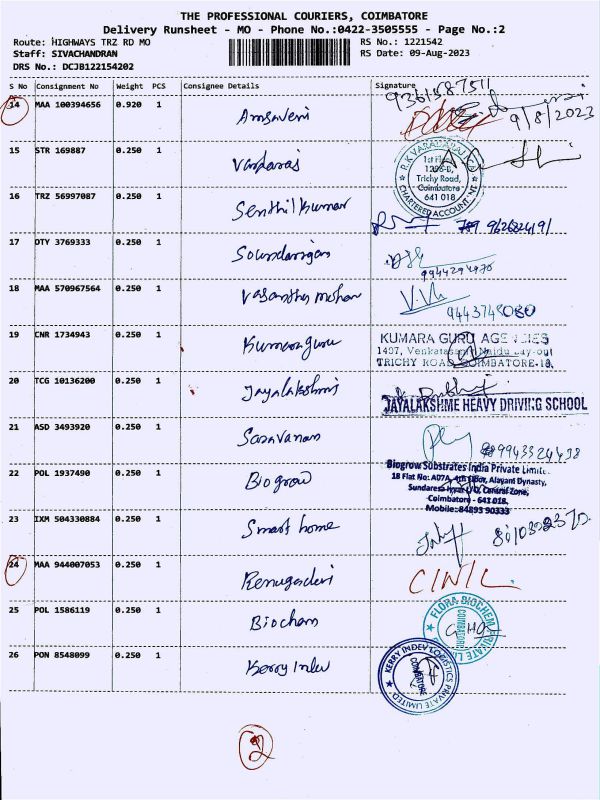 THE PROFESSIONAL COURIERS, COIMBATORE
Delivery Runsheet - MO - Phone No.:0422-3505555 - Page No.:2
Route: HIGHWAYS TRZ RD MO RS No.: 1221542
Staff: SIVACHANDRAN RS Date: 09-Aug-2023
DRS No.: DCJB122154202
S No Consignment No Weight PCS Consignee Details Signature
9361587511
14 MAA 100394656 0.920 1 Amsaveni 9/8/2023
15 STR 169887 0.250 1 Varadaraj
P.K VARADARAJAN
1st Floor,
1295-D,
Trichy Road,
Coimbatore
641 018
CHARTERED ACCOUNTANT
16 TRZ 56997087 0.250 1 Senthil kumar 9626824191
17 DTY 3769333 0.250 1 Soundarrajan
9944294970
18 MAA 570967564 0.250 1 Vasantha mohan
9443748080
19 CNR 1734943 0.250 1 Kumaraguru
KUMARA GURU AGENCIES
1437, Venkatasamy Naidu Lay-out
TRICHY ROAD COIMBATORE-18.
20 TCG 10136200 0.250 1 Jayalakshmi
JAYALAKSHME HEAVY DRIVING SCHOOL
21 ASD 3493920 0.250 1 Saravanan
9943324438
22 POL 1937490 0.250 1 Biogrow
Biogrow Substrates India Private Limited
18 Flat No: A07A, 4th Floor, Alayam Dynasty,
Central Zone,
Coimbatore - 641 018.
Mobile: 84893 90333
23 IXM 504330884 0.250 1 Smart home
24 MAA 944007053 0.250 1 Renugadevi CINIL
25 POL 1586119 0.250 1 Biochem
FLORA BIOCHEM PRIVATE LIMITED
COIMBATORE
26 PON 8548099 0.250 1 Kerry Indev
KERRY INDEV LOGISTICS PRIVATE LIMITED
COIMBATORE
2